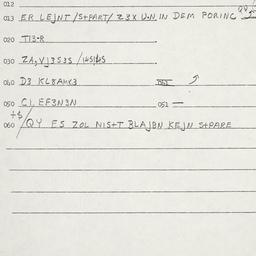 012
013 ER LEJNT /S+PART/ Z3X U-N IN DEM PORINC
020 TI3-R
030 ZA,VJ3S3S /
040 D3 KL8AHX3
050 CI EF3N3N 051 —
060 QY ES ZOL NIS+T BLAJBN KEJN S+PARE